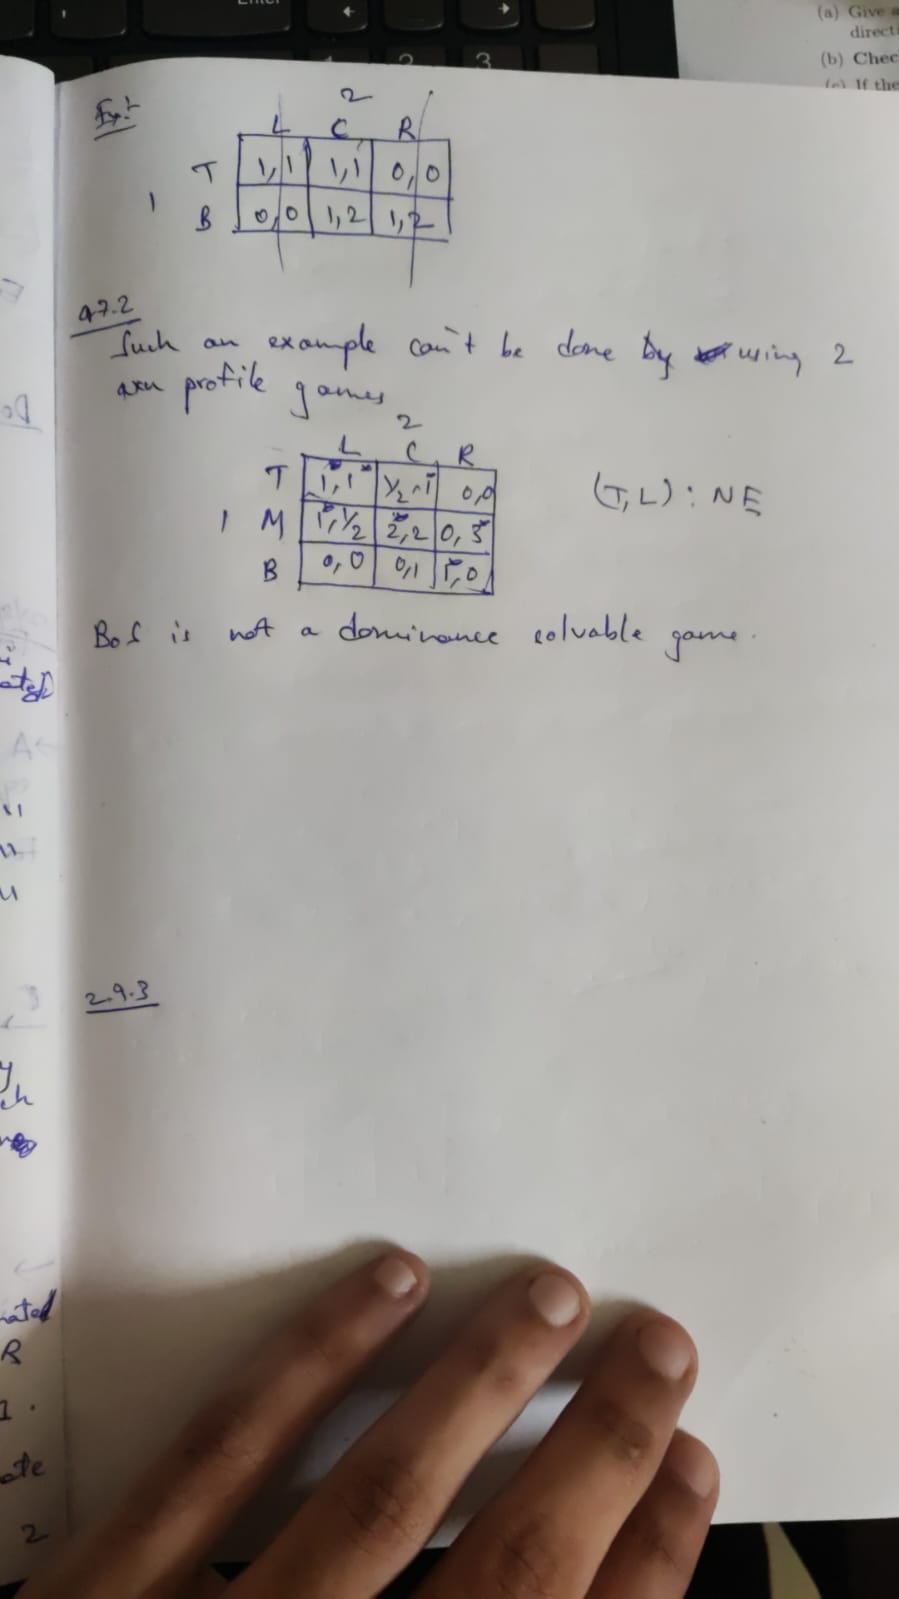 Enter
3
(a) Give a
direct
(b) Chec
(c) If the
Ex:-
2
L C R
T 1,1 1,1 0,0
1
B 0,0 1,2 1,2
47.2
Such an example can't be done by using 2
axn profile games
2
L C R
T 1,1 1/2,1 0,0
(T,L): NE
1 M 1,1/2 2,2 0,3
B 0,0 0,1 1,0
BoS is not a dominance solvable game.
2.9.3
nated
B
1.
ate
2